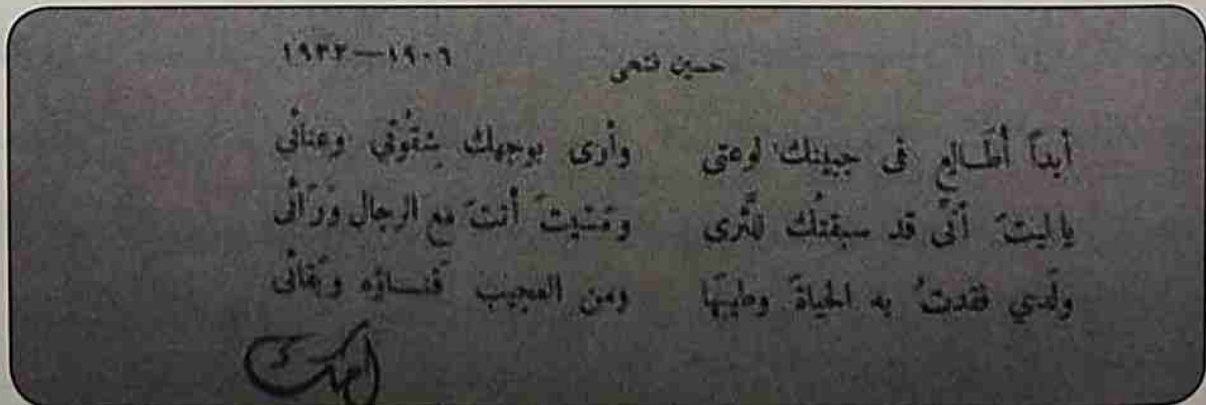 حسين فتحى ١٩٠٦—١٩٣٢
أبداً أُطَالِع فى جبينك لوعتى وأرى بوجهك شِقْوَتي وعنائى
يا ليتَ أنّى قد سبقتُك للثَّرى ومَشيتَ أنتَ مع الرجال وَرَائى
ولَدي فقدتُ به الحياةَ وطيبَها ومن العجيب فَناؤه وبَقائى
أمك